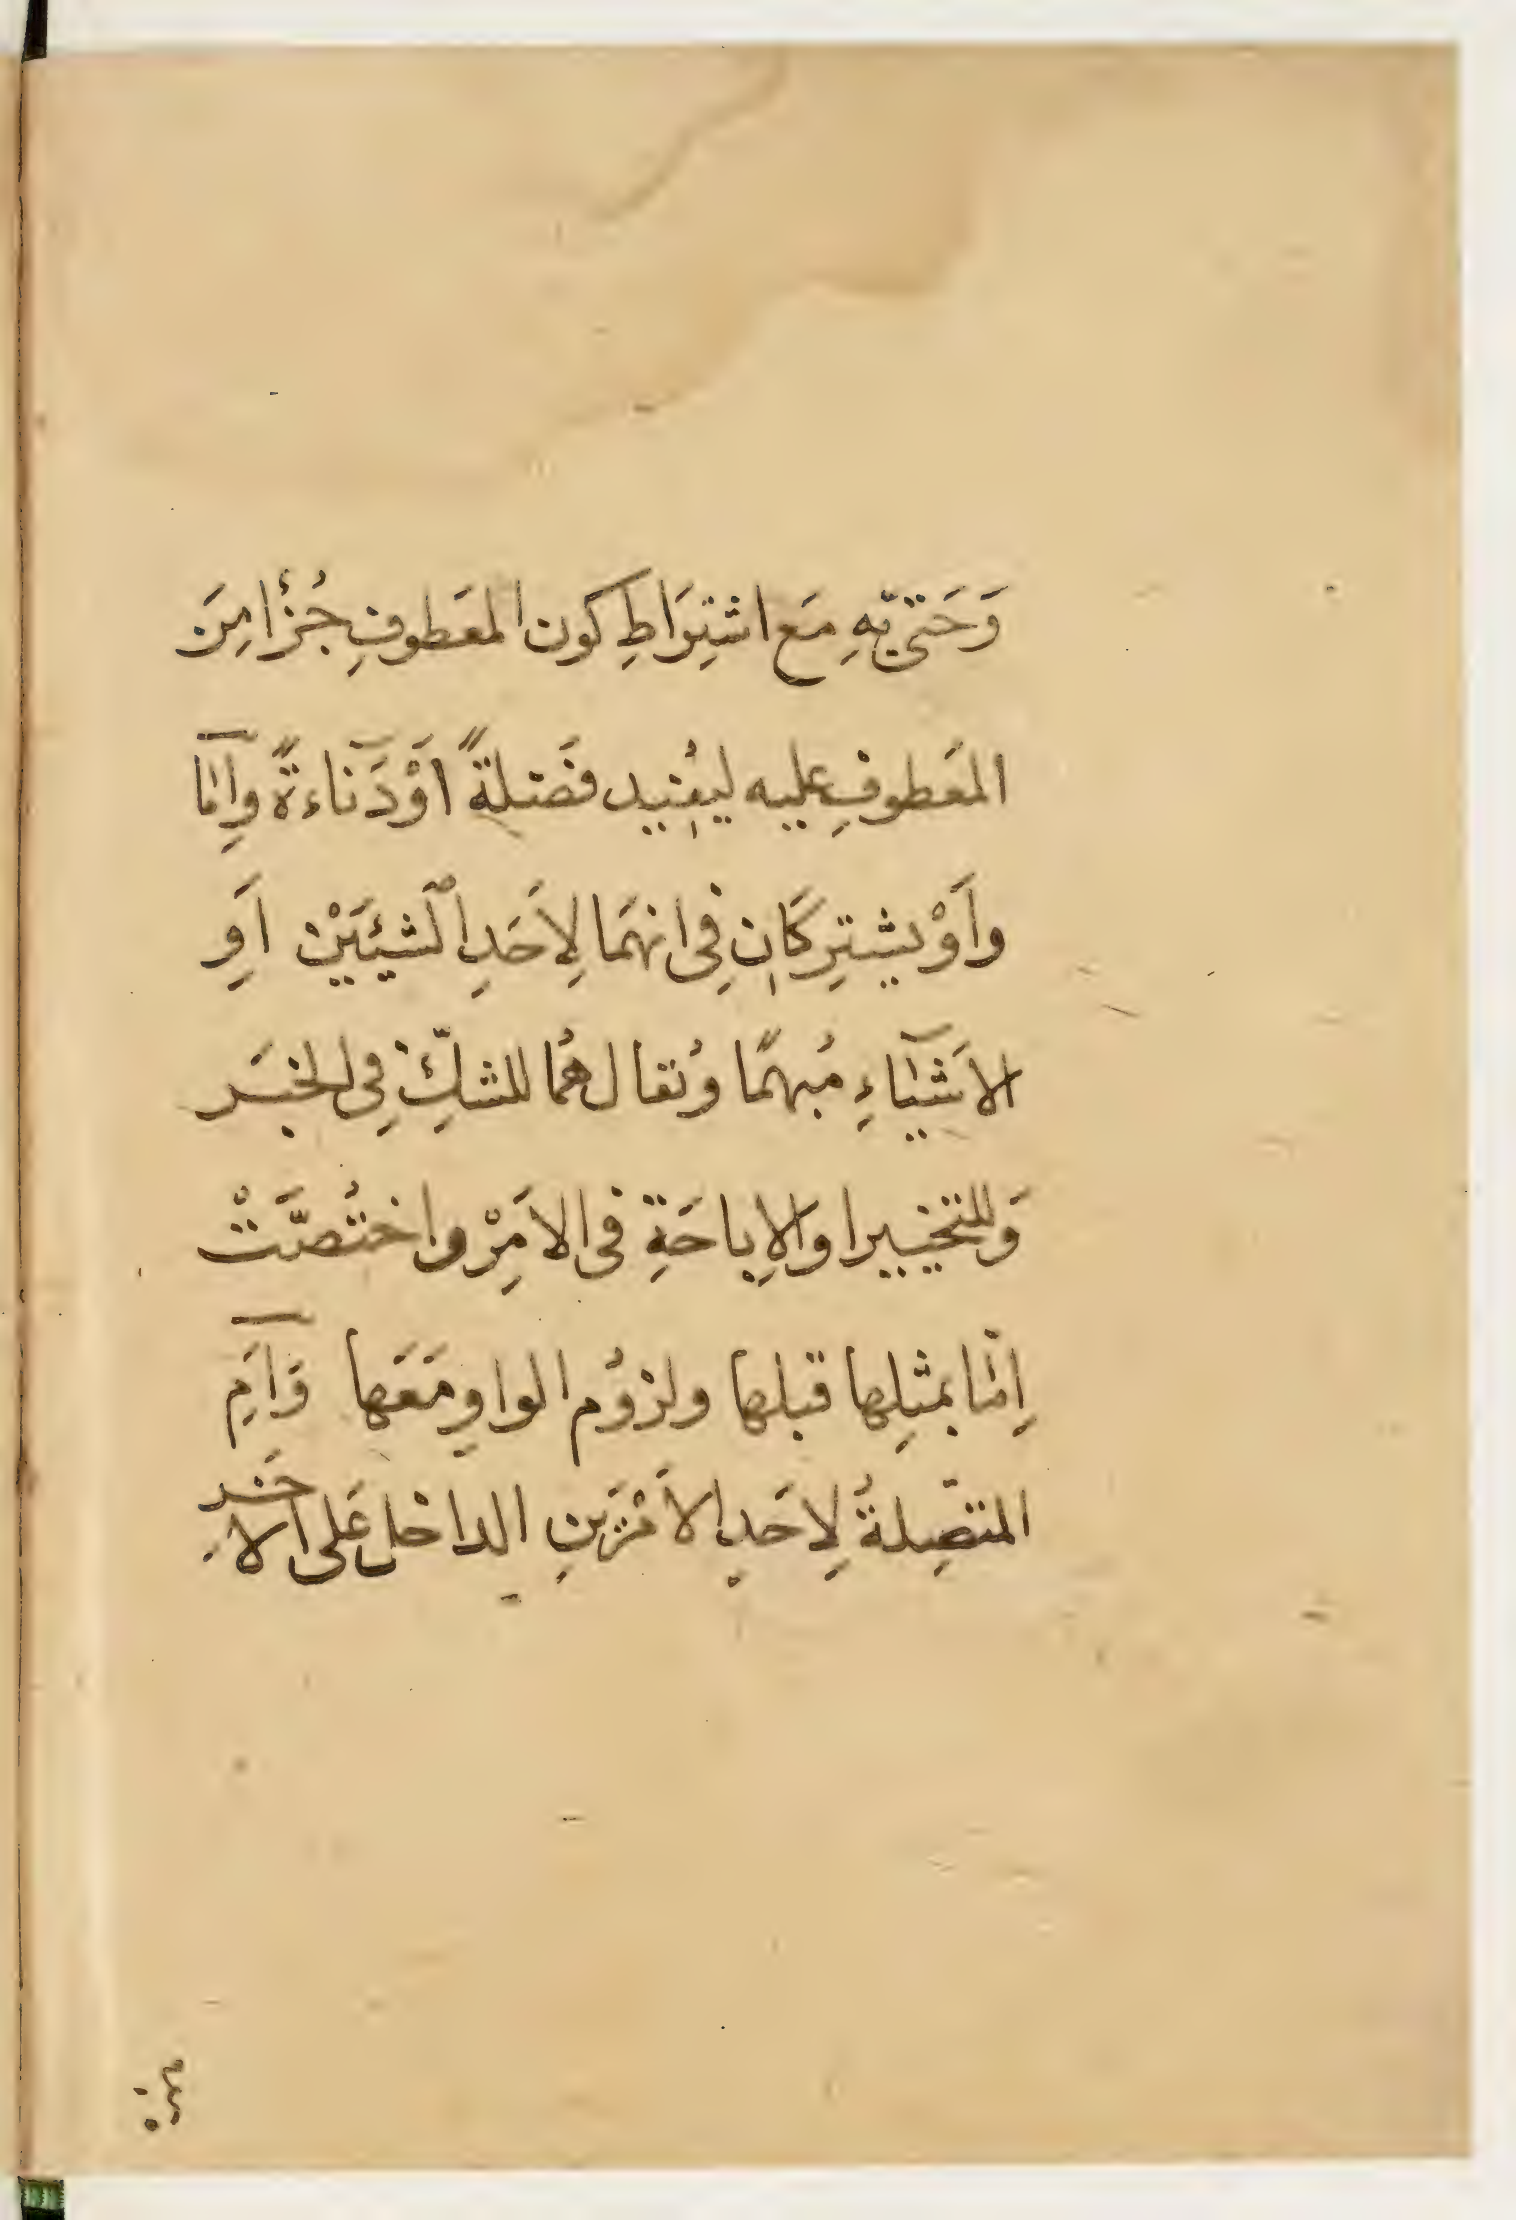 وَحَتىّ بّهِ مَع اشتِرَاطِ كون المعَطوفِ جُزْأ مِنَ
المعَطوفِ عليه ليفُيد فضَلةً اَوْ دَنَآءةً وَاِمّا
واَوْ يشتِركَانِ فِى انهمَا لِاَحَدِ الشيئَيْن اَوِ
الاَشَيآءِ مُبهمًا وُتقال هُما للشكِّ فِى الخبَر
وَللتخيير ا والاِباحَةِ فى الاَمِرْ واختُصَّتْ
اِمّا بمثلِها قبلها ولزوُم الواوِ مَعَها وَاَمِ
المتصِّلةُ لِاَحَدِ الاَمْرَينِ الداخل عَلى الاخَر